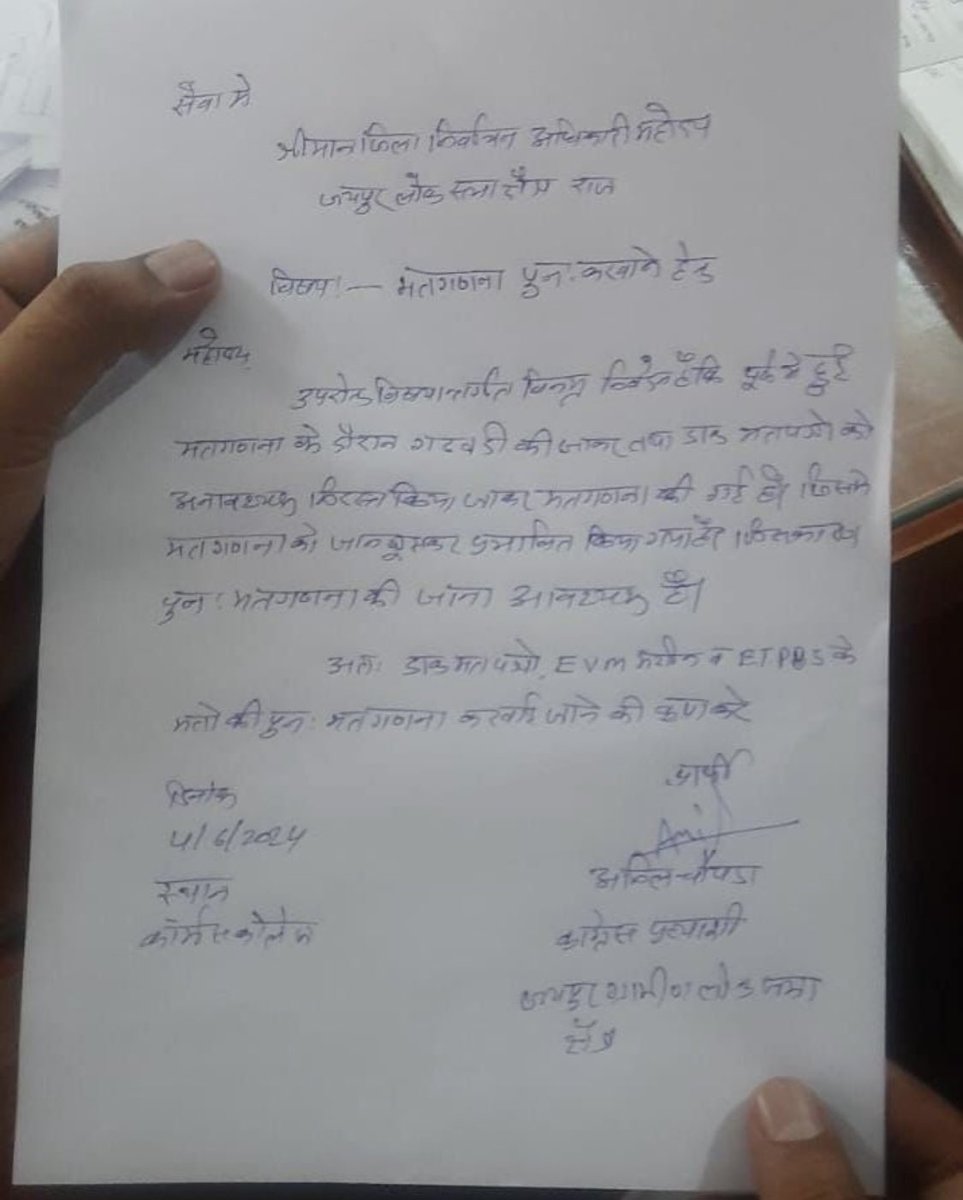 सेवा मे
श्रीमान जिला निर्वाचन अधिकारी महोदय
जयपुर लोक सभा क्षैत्र राज
विषय:— मतगणना पुन: करवाने हेतु
महोदय,
उपरोक्त विषयान्तर्गत विनम्र निवेदन है कि पूर्व मे हुई
मतगणना के दौरान गडबडी की जाकर तथा डाक मतपत्रो को
अनावश्यक निरस्त किया जाकर मतगणना की गई है। जिससे
मतगणना को जानबूझकर प्रभावित किया गया है। जिसका
पुन: मतगणना की जाना आवश्यक है।
अत: डाक मतपत्रो, EVM मशीन व ETPBS के
मतो की पुन: मतगणना करवाई जाने की कृपा करे
दिनांक
4/6/2024
स्थान
कॉर्मस कॉलेज
प्रार्थी
अनिल चौपडा
कांग्रेस प्रत्याशी
जयपुर ग्रामीण लोक सभा
क्षैत्र